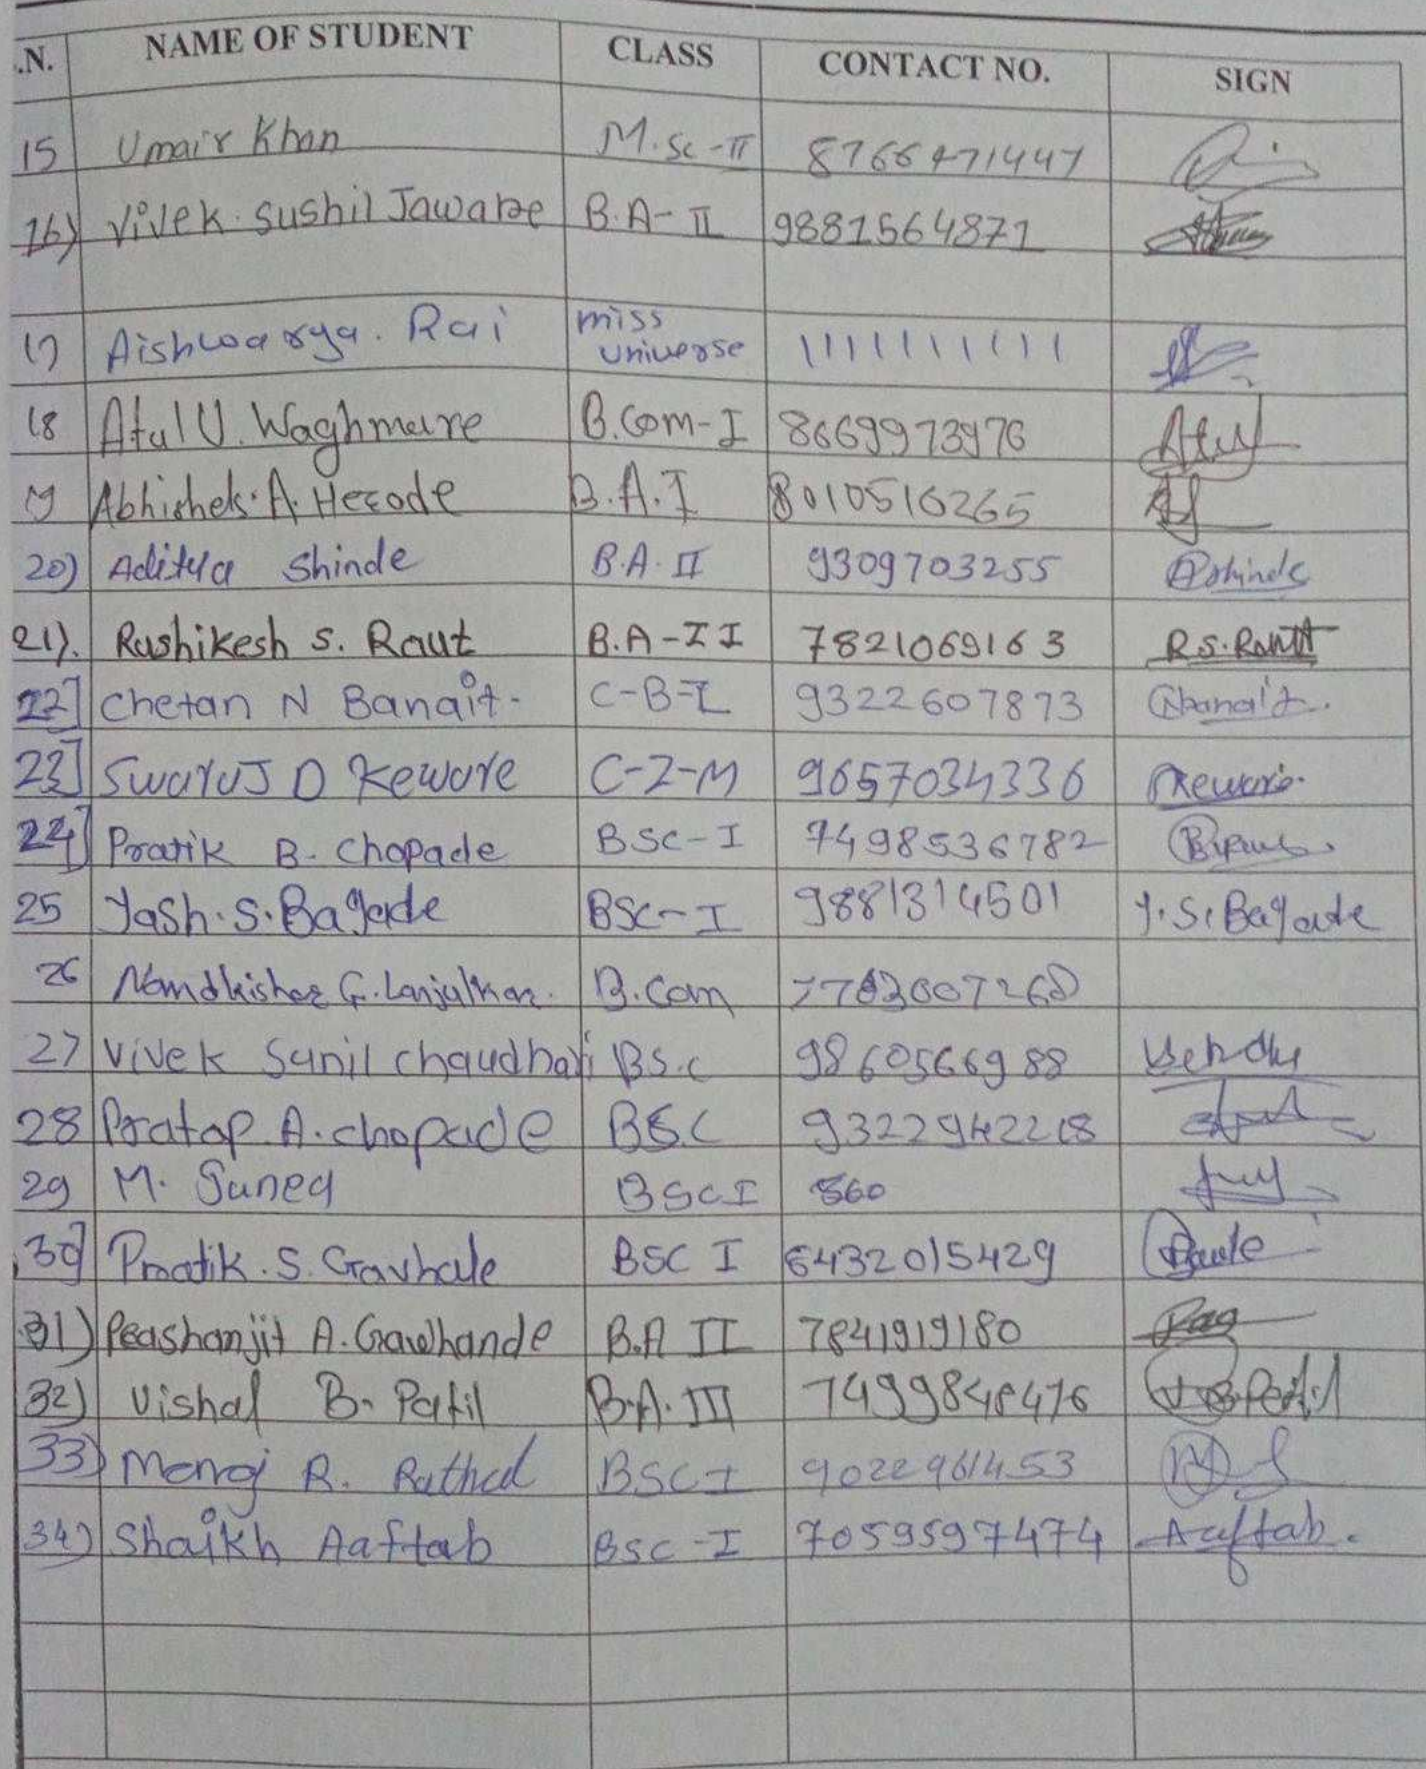 .N. NAME OF STUDENT CLASS CONTACT NO. SIGN
15 Umair Khan M.Sc-II 8766471447
16) Vivek. Sushil Jaware B.A-II 9881564871
17 Aishwarya. Rai miss universe 1111111111
18 Atul U. Waghmare B.Com-I 8669973976 Atul
19 Abhishek. A. Herode B.A.I 8010516265
20) Aditya Shinde B.A. II 9309703255 AShinde
21). Rushikesh S. Raut B.A-II 7821069163 R.S.Raut
22] Chetan N Banait. C-B-Z 9322607873 Banait.
23] Swaruj D Keware C-Z-M 9657034336 Keware.
24] Pratik B. Chopade BSC-I 7498536782
25 Yash.S.Bagade BSC-I 9881314501 Y.S.Bagade
26 Nandkishor G. Lanjulkar. B.Com
27 Vivek Sunil Chaudhari BS.C 9860566988
28 Pratap A. Chopade BS.C
29 M. Juned BSC I 860
30] Pratik. S. Gavhale BSC I 6432015429
31) Prashanjit A. Gawhande B.A II 7841919180
32) Vishal B. Patil B.A. III 7499848476 V.B.Patil
33) Manoj R. Rathod BSC I 9022961453
34) Shaikh Aaftab BSC-I 7059597474 Aaftab.